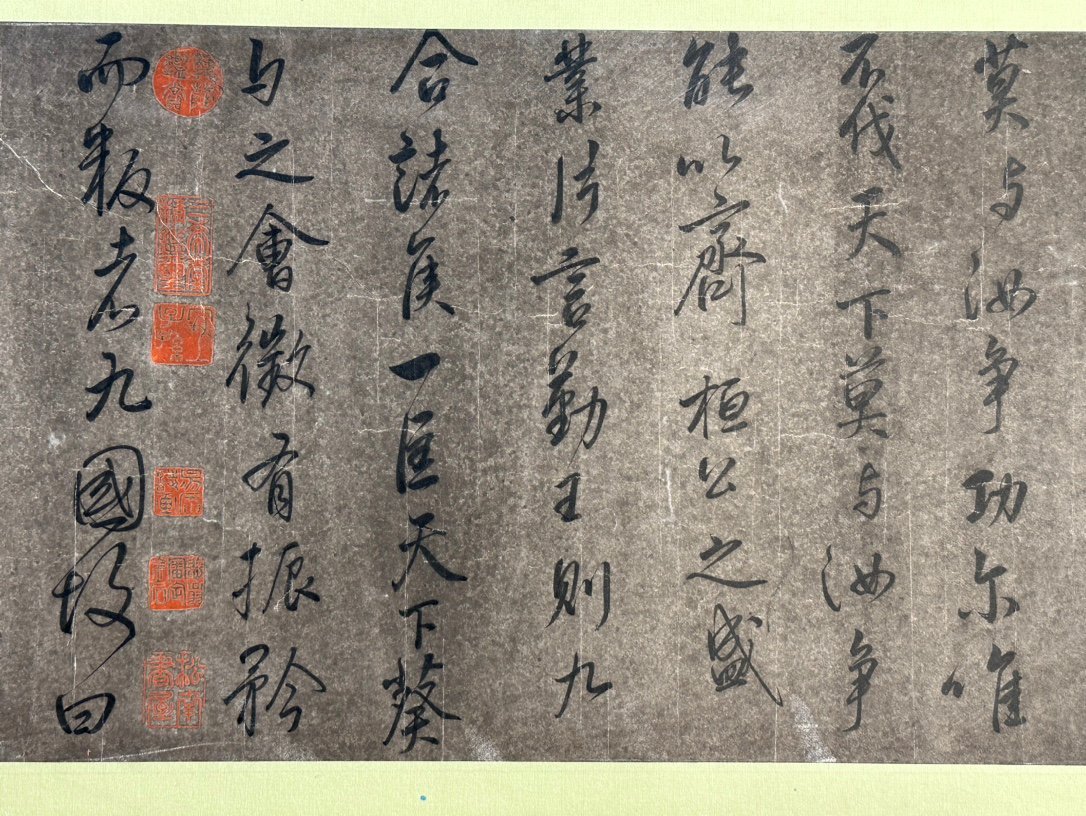 莫与汝争功尔唯
不伐天下莫与汝争
能以齊桓公之盛
業片言勤王則九
合諸侯一匡天下葵
丘之會微有振矜
而叛者九國故曰